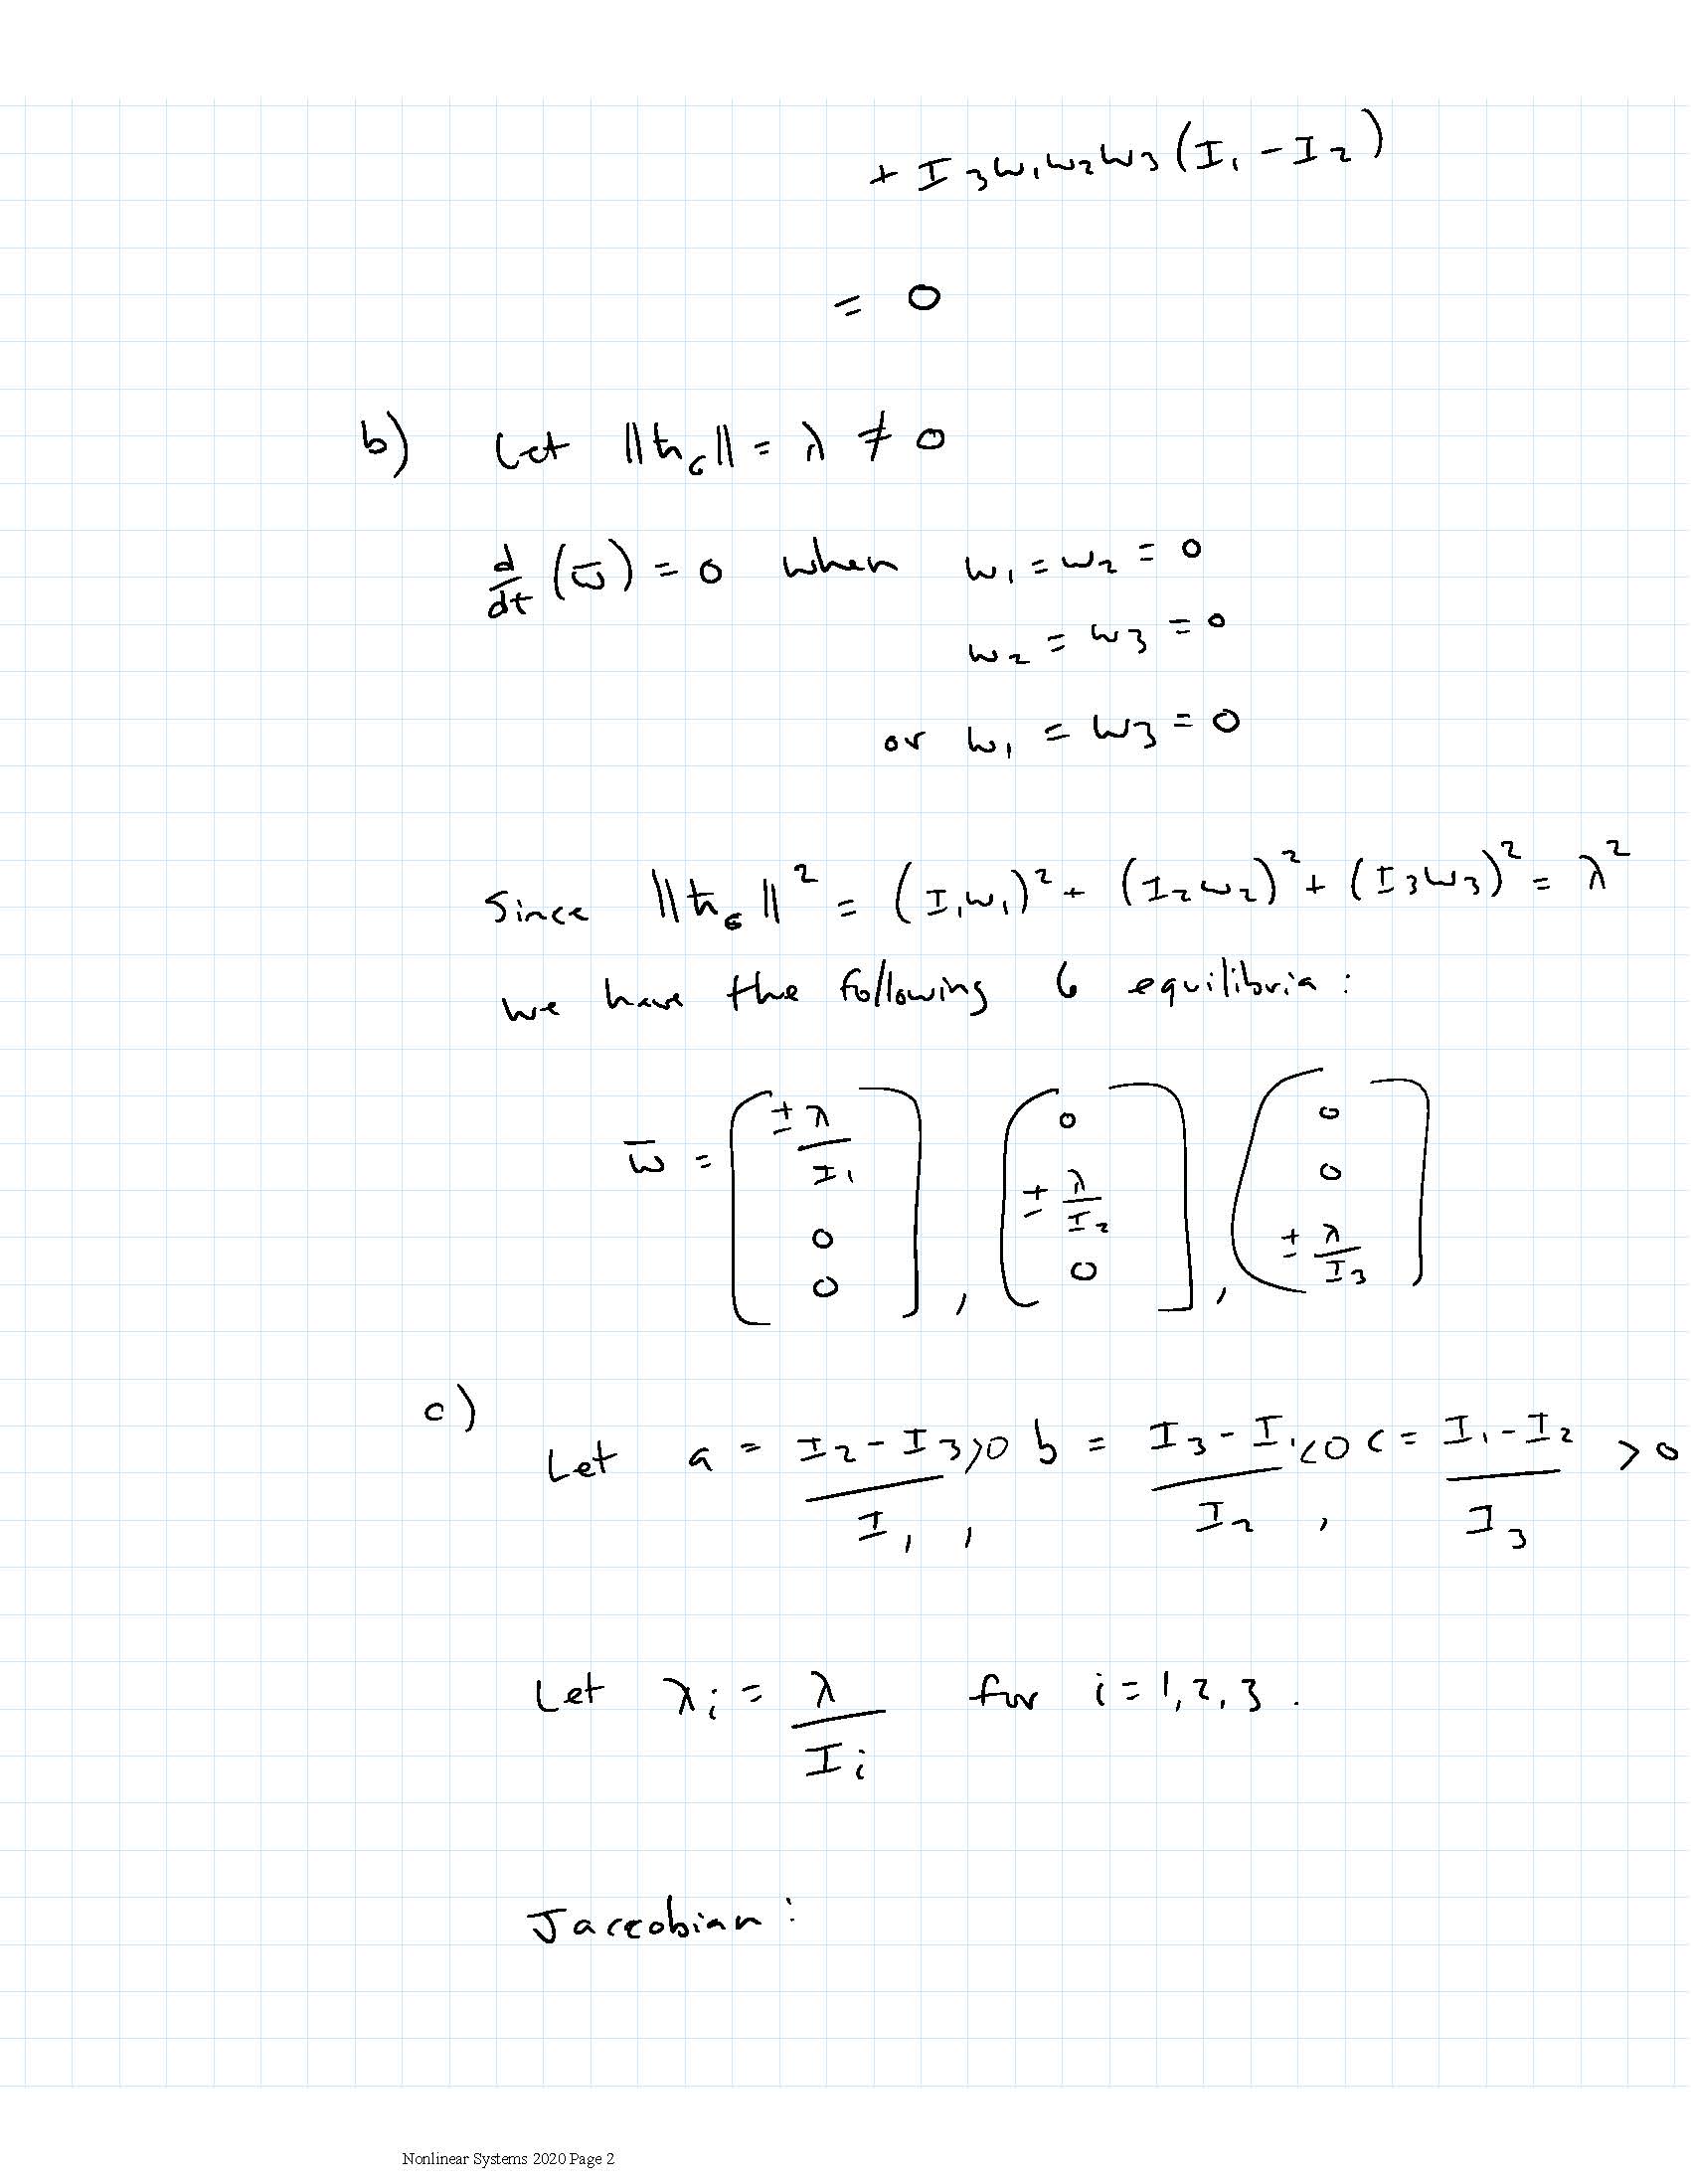 + I₃w₁w₂w₃(I₁ - I₂)
= 0
b) Let ||ħ_G|| = λ ≠ 0
d/dt (w̄) = 0 when w₁ = w₂ = 0
w₂ = w₃ = 0
or w₁ = w₃ = 0
Since ||ħ_G||² = (I₁w₁)² + (I₂w₂)² + (I₃w₃)² = λ²
we have the following 6 equilibria :
w̄ = [± λ/I₁ 0 0], [0 ± λ/I₂ 0], [0 0 ± λ/I₃]
c)
Let a = (I₂ - I₃)/I₁ >0, b = (I₃ - I₁)/I₂ <0, c = (I₁ - I₂)/I₃ > 0
Let λᵢ = λ/Iᵢ for i = 1, 2, 3 .
Jaccobian :
Nonlinear Systems 2020 Page 2